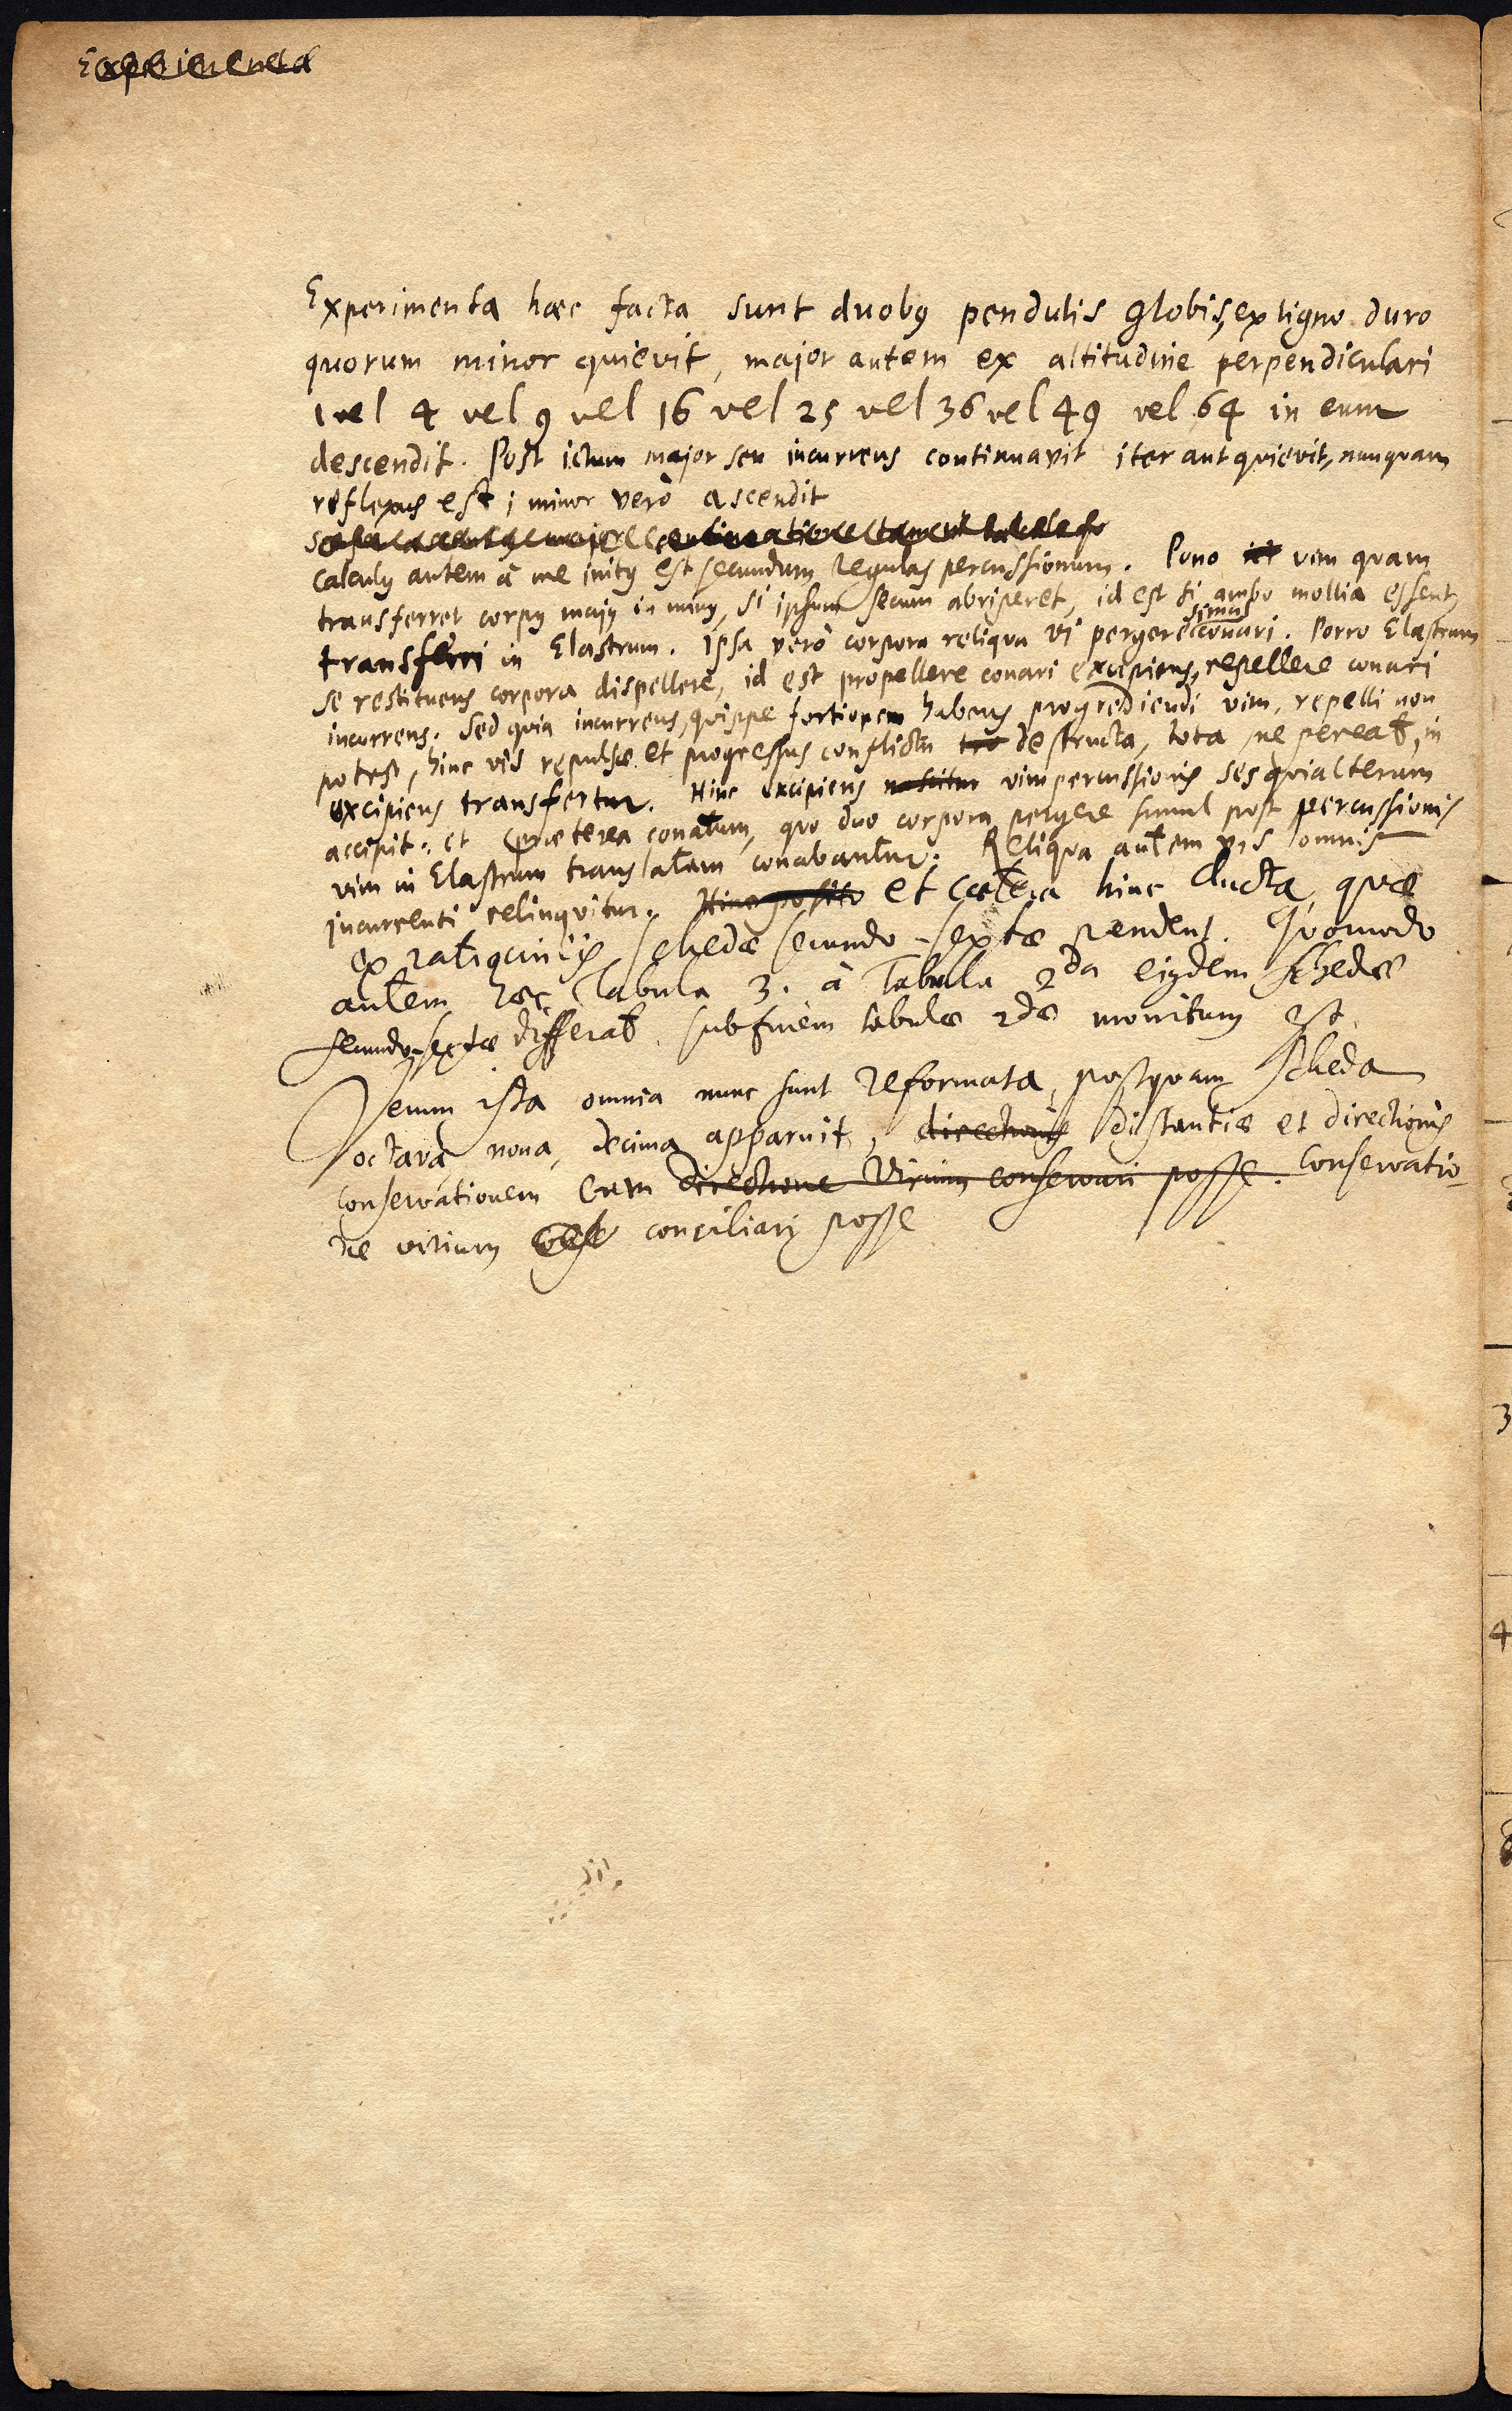 Experimenta
Experimenta hæc facta sunt duobꝰ pendulis globis, ex ligno duro
quorum minor quievit, major autem ex altitudine perpendiculari
1 vel 4 vel 9 vel 16 vel 25 vel 36 vel 49 vel 64 in eum
descendit. Post ictum major seu incurrens continuavit iter aut quievit, nunquam
reflexus est; minor verò ascendit
Calculꝰ autem à me initꝰ est secundum regulas percussionum. Pono vim quam
transferret corpꝰ majꝰ in minꝰ, si ipsum secum abriperet, id est si ambo mollia essent,
transferri in Elastrum. Ipsa verò corpora reliqua vi pergere simul conari. Porro Elastrum
se restituens corpora dispellere, id est propellere conari excipiens, repellere conari
incurrens. Sed quia incurrens, quippe fortiorem habens progrediendi vim, repelli non
potest, hinc vis repulsæ et progressus conflictu destructa, tota ne pereat, in
excipiens transfertur. Hinc excipiens nascitur vim percussionis sesquialteram
accipit: et præterea conatum, quo duo corpora pergere simul post percussionis
vim in Elastrum translatam conabantur. Reliqua autem vis omnis
incurrenti relinquitur. Hinc posito et cætera hinc ducta, quæ
ex ratiociniis schedæ secundo-sextæ pendent. Quomodo
autem hæc Tabula 3. à Tabula 2da ejꝰdem schedæ
secundo-sextæ differat, sub finem tabulæ 2dæ monitum est.
Verum ista omnia nunc sunt reformata, postquam scheda
octava, nona, decima apparuit, directionis distantiæ et directionis
conservationem cum directione virium conservari posse. conservatio-
ne virium conciliari posse
3
4